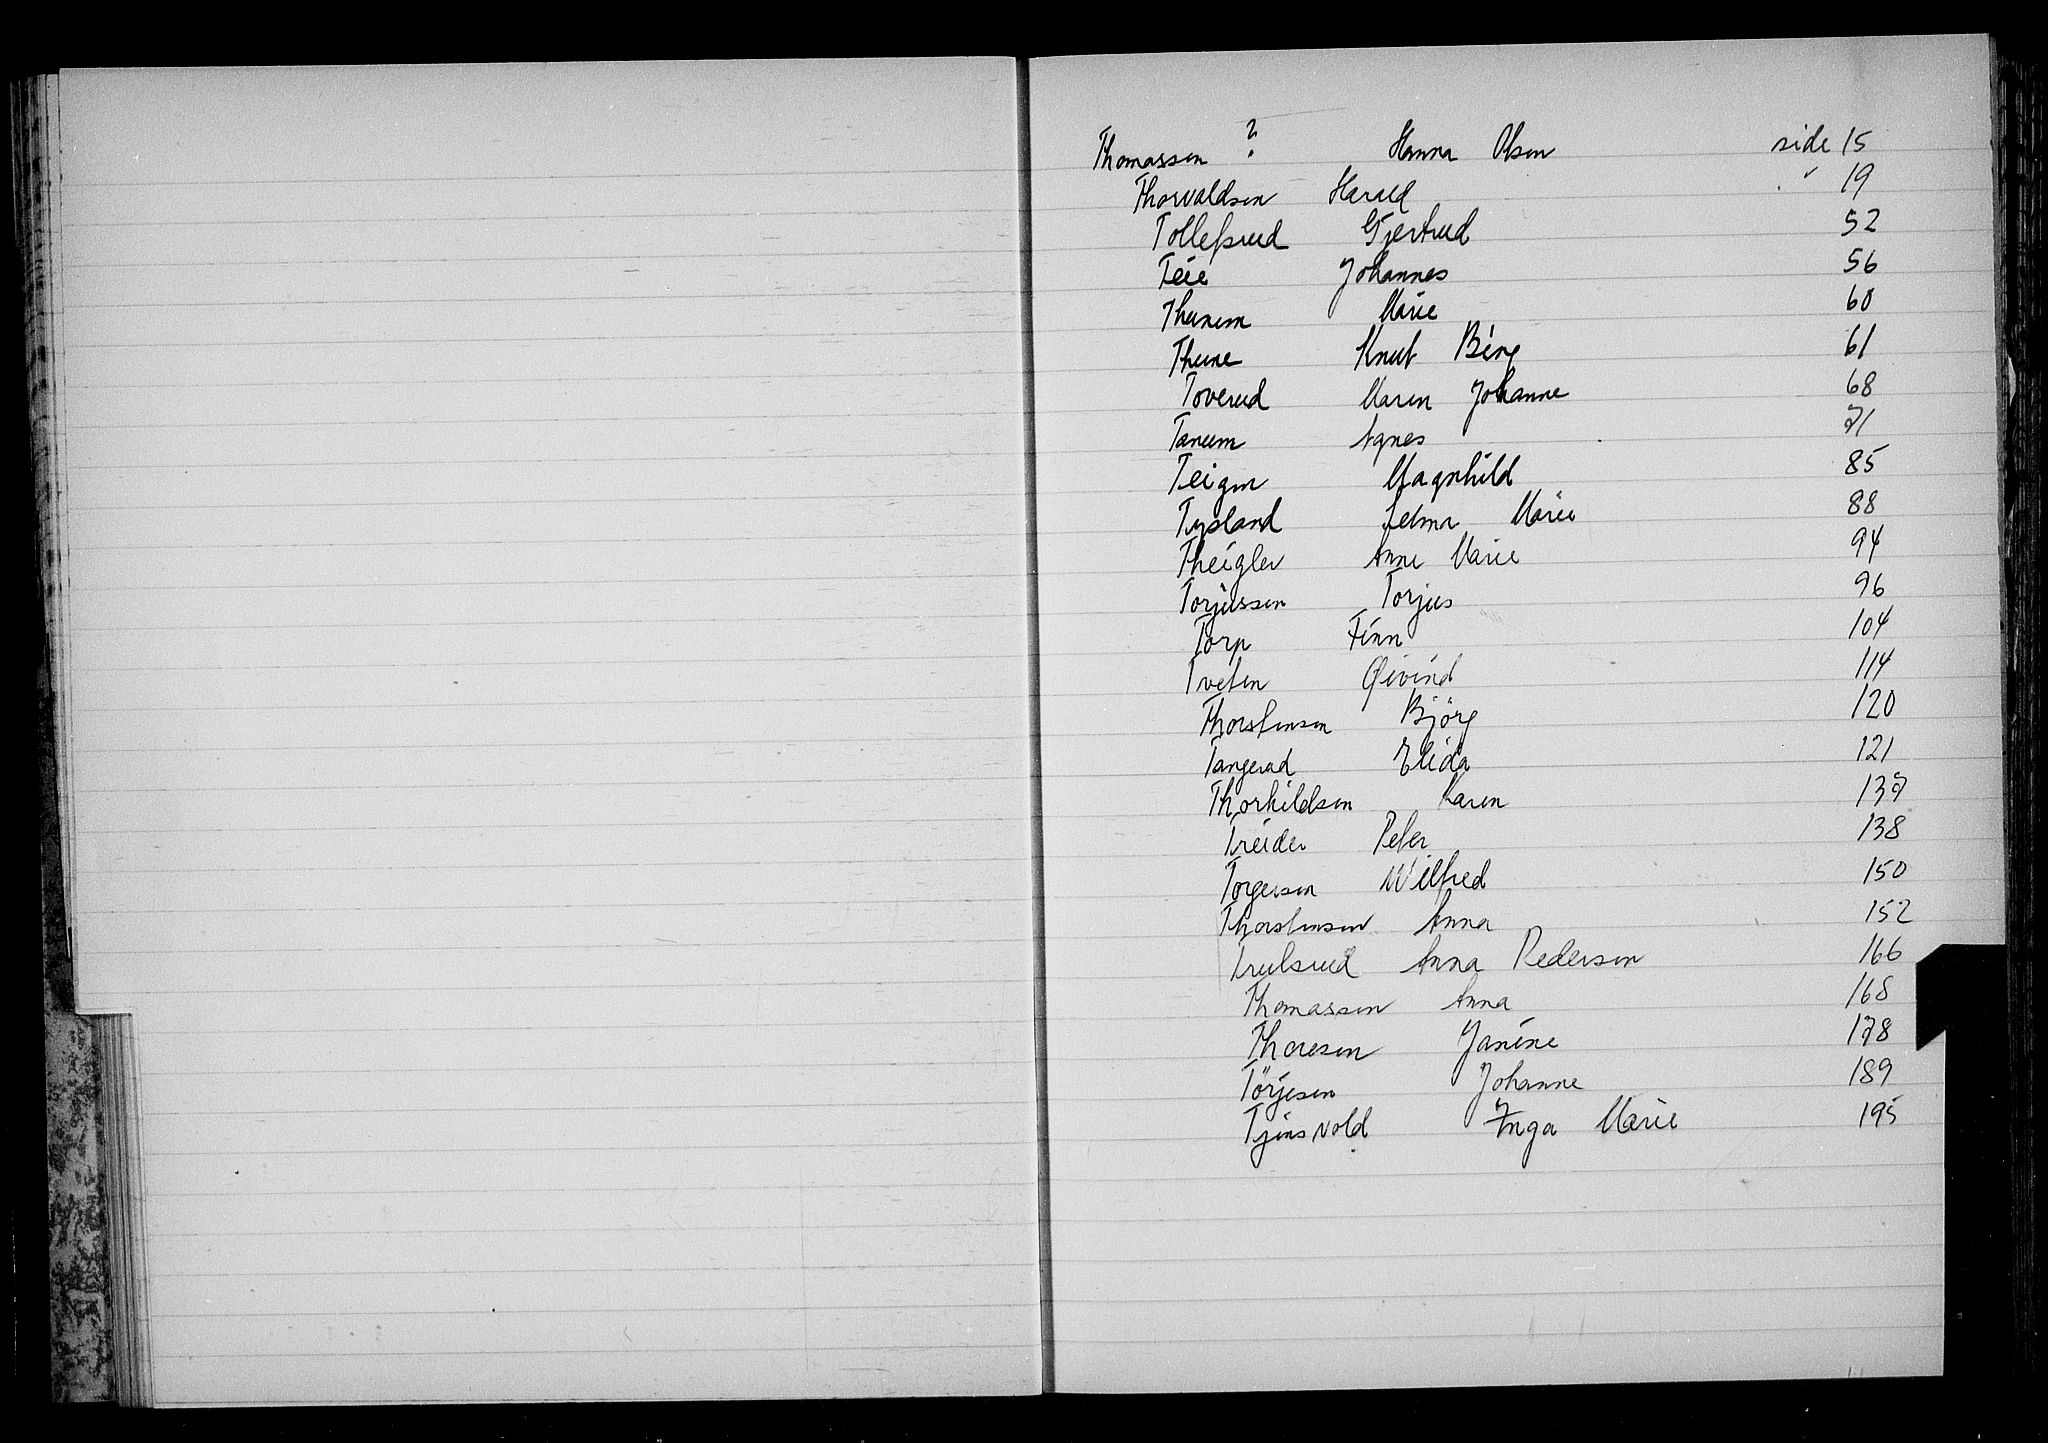 Thomassen ? Hanna Olsen side 15
Thorvaldsen Harald 19
Tollefsrud Gjertrud 52
Teie Johannes 56
Thanem Marie 60
Thune Knut Berg 61
Toverud Maren Johanne 68
Tanum Agnes 71
Teigen Magnhild 85
Tysland Selma Marie 88
Theigler Anne Marie 94
Torjussen Torjus 96
Torp Finn 104
Tveten Øivind 114
Thorstensen Björg 120
Tangerud Elida 121
Thorkildsen Karen 137
Treider Peter 138
Torgersen Wilfred 150
Thorstensen Anna 152
Trulsrud Anna Pedersen 166
Thomassen Anna 168
Thoresen Janine 178
Törjesen Johanne 189
Tjensvold Inga Marie 195